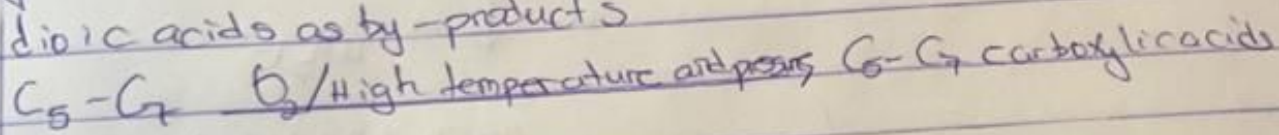 dioic acids as by-products
C5-C7 O2/High temperature and press C5-C7 carboxylic acids